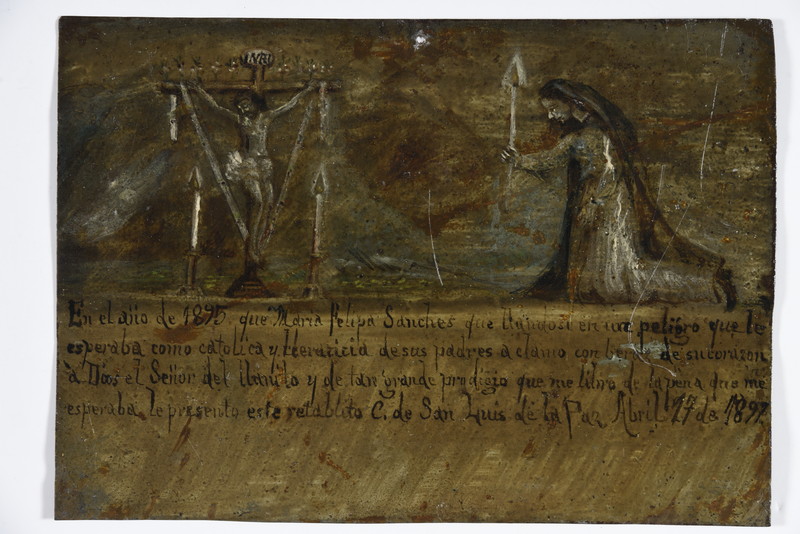 INRI
En el año de 1895, que Maria Felipa Sanches que llandose en un peligro que le
esperaba como catolica y de sus padres a clamo con berda de su corazon
à Dios el Señor del llanito y de tan grande prodigio que me libro de la pena que me
esperaba, le presento este retablito C. de San Luis de la Paz Abril 17 de 1897